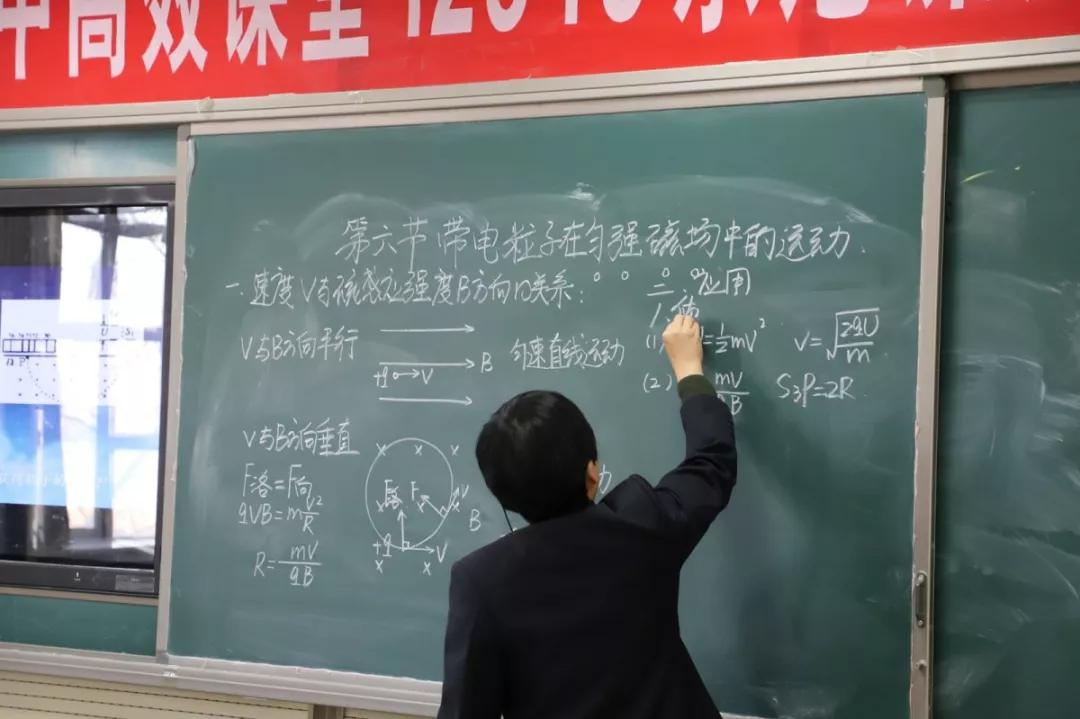 中高效课堂
第六节 带电粒子在匀强磁场中的运动.
一.速度V与磁感应强度B方向的关系:
V与B方向平行
B
+q V
匀速直线运动
V与B方向垂直
F洛=F向
qVB=m V²/R
R= mV/qB
F洛 F V
B
+q V
二.应用
1.
(1) =½mV² V=√(2qU/m)
(2) mV/qB S₃P=2R